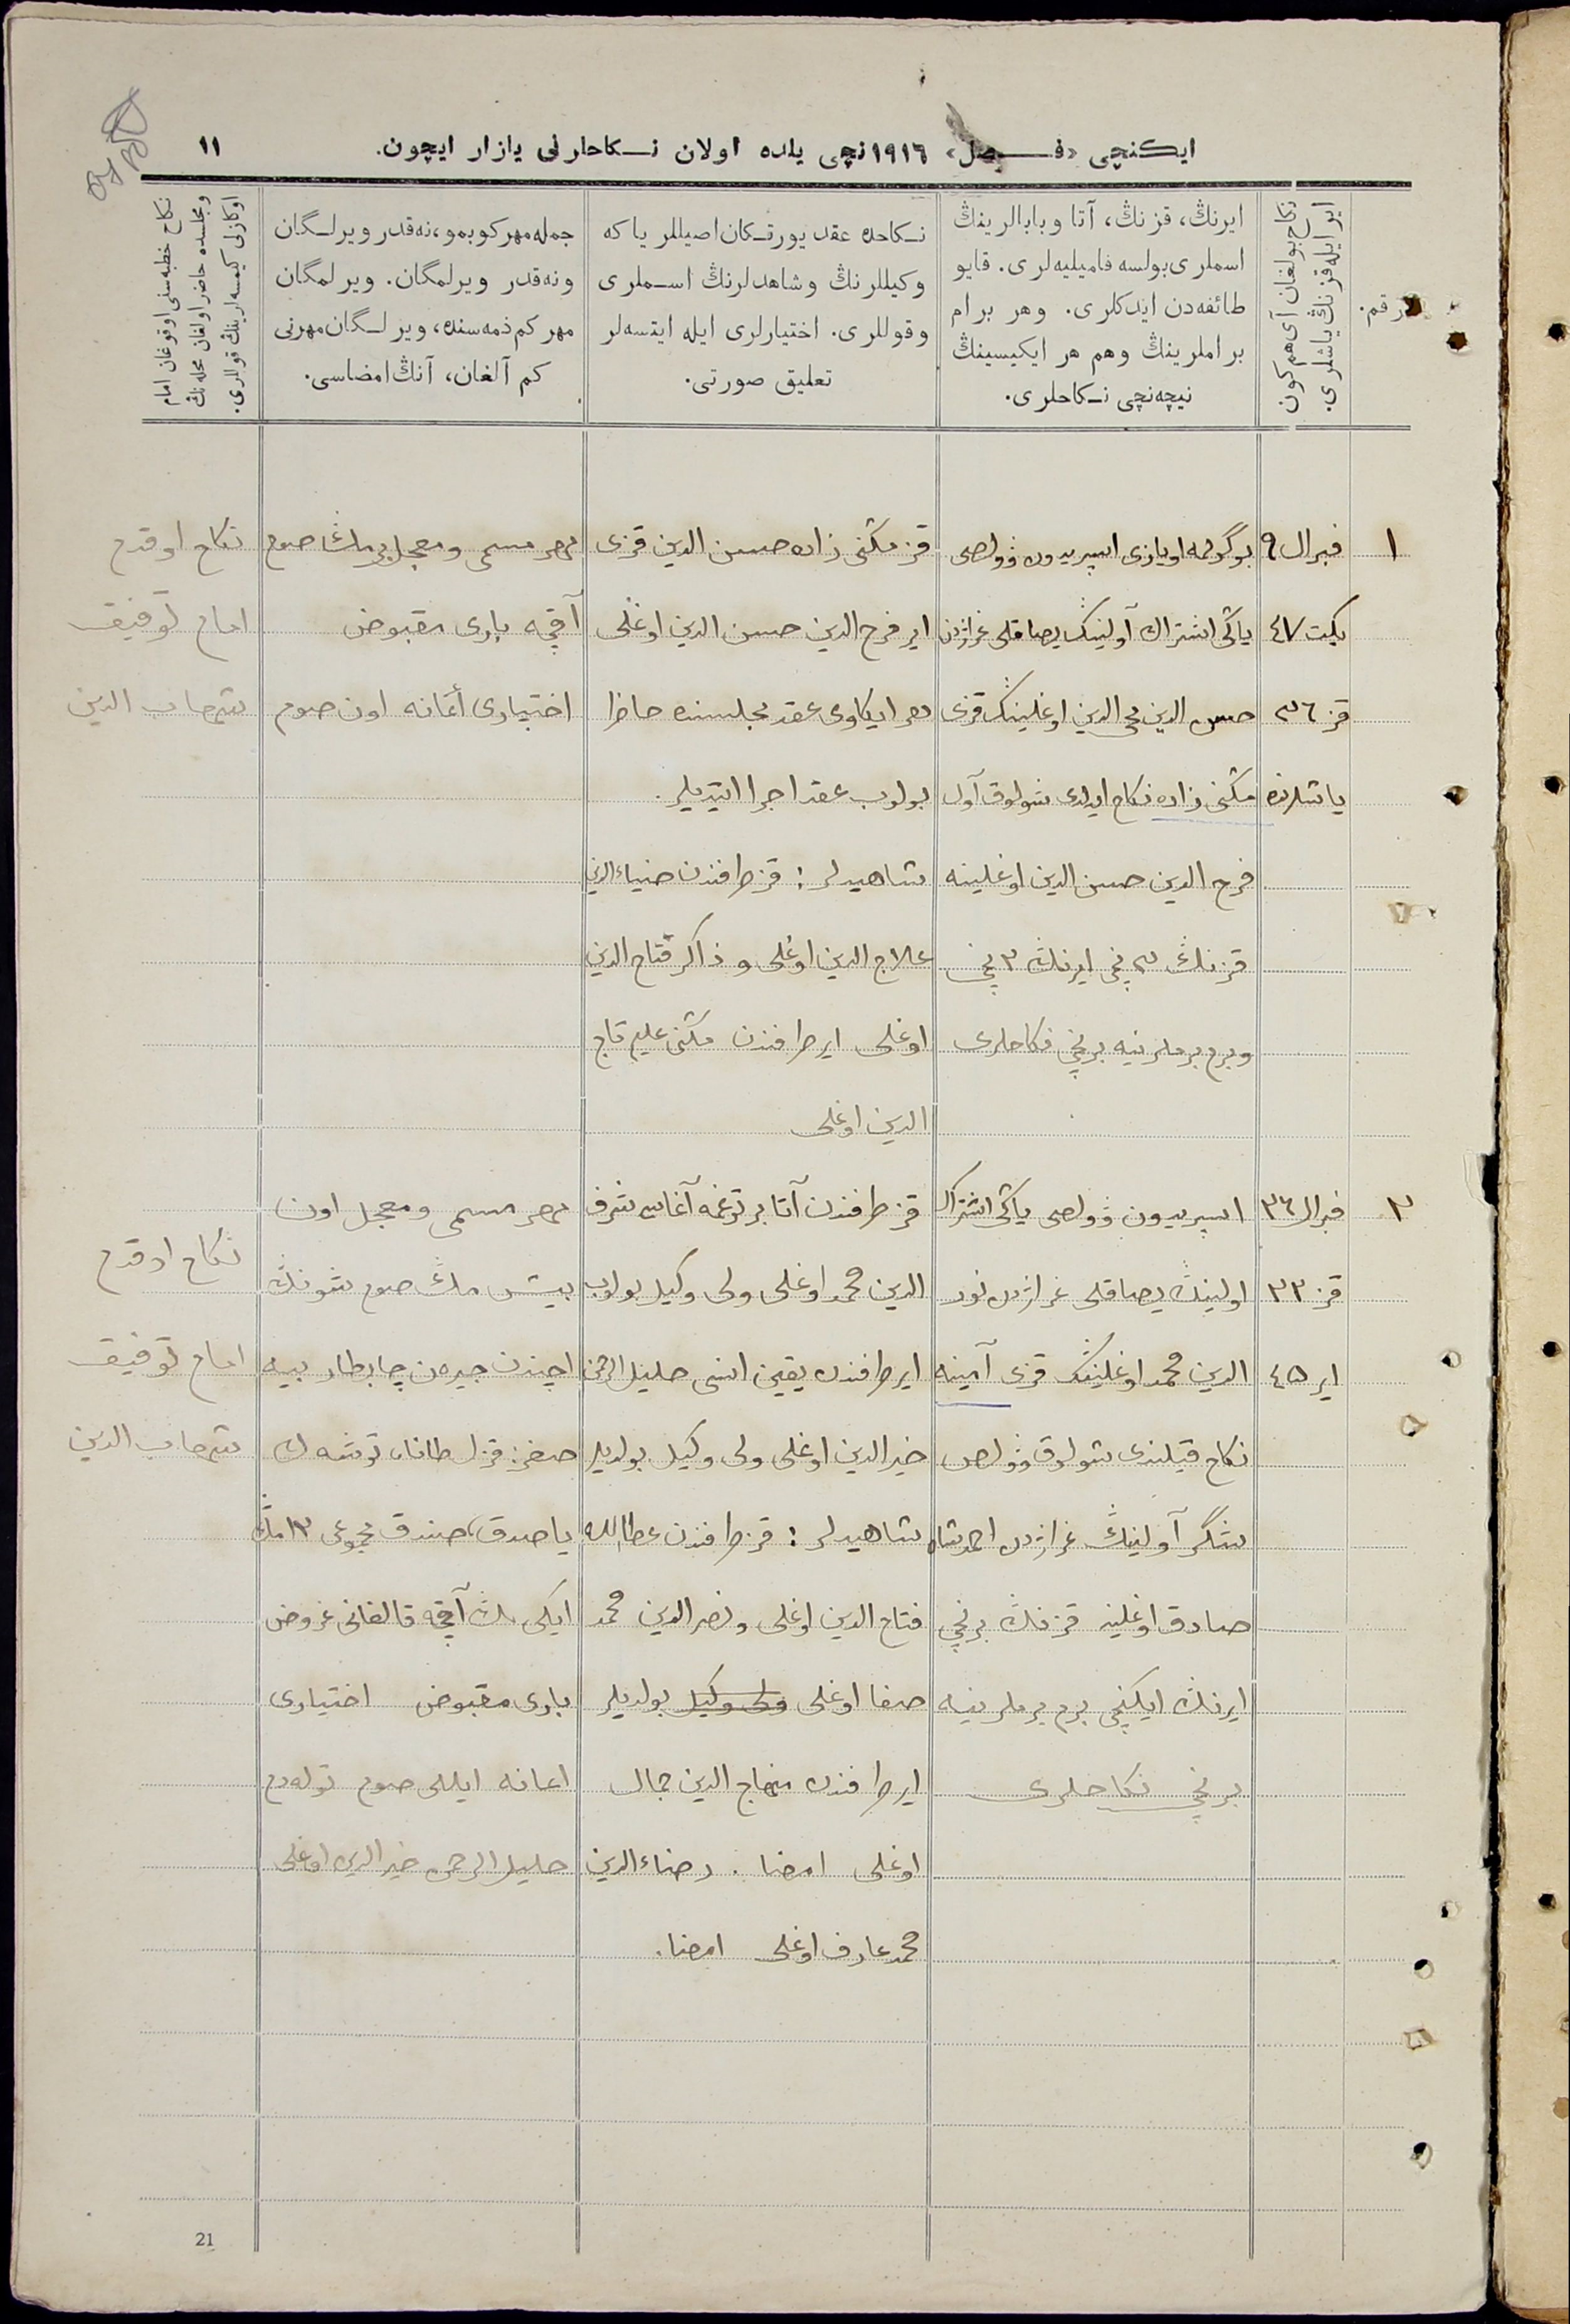 ایکنچی «فصل» ١٩١٦نچی یلده اولان نکاحلرنی یازار ایچون.
١١
رقم.
نکاح بولغان آی هم کون
ایر ایله قزنڭ یاشلری.
ایرنڭ، قزنڭ، آتا وبابالرینڭ
اسملری بولسه فامیلیه‌لری. قایو
طائفه‌دن ایدکلری. وهر برام
براملرینڭ وهم هر ایکیسینڭ
نیچه‌نچی نکاحلری.
نکاحده عقد یورتکان اصیللر یا که
وکیللرنڭ وشاهدلرنڭ اسملری
وقوللری. اختیارلری ایله ایتسه‌لر
تعلیق صورتی.
جمله مهر کوبمو، نه‌قدر ویرلگان
ونه‌قدر ویرلمگان. ویرلمگان
مهر کم ذمه‌سنده، ویرلگان مهرنی
کم آلغان، آنڭ امضاسی.
نکاح خطبه‌سنی اوقوغان امام
ومجلسده حاضر اولغان محله‌نڭ
اوکازلی کیمسه‌لرینڭ قوللری.
١
فبرال ٩
یکت ٤٧
قز ٣٦
یاشلرنده
بوگولمه اویازی اسپریدون ۋولصی
یاڭی اشتراك آولینڭ یصاقلی غراژدن
حسن الدین محی الدین اوغلینڭ قزی
مڭنی زاده نکاح ایدلدی شولوق آول
فرح الدین حسن الدین اوغلینه
قزنڭ ٣نچی ایرنڭ ٢نچی
وبرم برملرینه برنچی نکاحلری
قز مڭنی زاده حسن الدین قزی
ایر فرح الدین حسن الدین اوغلی
هر ایکاوی عقد مجلسنده حاظر
بولوب عقد اجرا ایتدیلر.
شاهیدلر: قز طرافندن ضیاءالدین
علاج الدین اوغلی و ذاکر فتاح الدین
اوغلی ایر طرافندن مڭنی علیم تاج
الدین اوغلی
مهر مسمی ومعجل بر مڭ صوم
آقچه باری مقبوض
اختیاری أعانه اون صوم
نکاح اوقدم
امام توفیق
شهاب الدین
٢
فبرال ٢٦
قز ٣٣
ایر ٤٥
اسپریدون ۋولصی یاڭی اشتراك
اولینڭ یصاقلی غراژدن نور
الدین محمد اوغلینڭ قزی آمینه
نکاح قیلندی شولوق ۋولصی
شنگر آولینڭ غراژدن احمدشاه
صادق اوغلینه قزنڭ برنچی
ایرنڭ ایکنچی برم برملرینه
برنچی نکاحلری
قز طرافندن آتا بر توغمه آغاسی شرف
الدین محمد اوغلی ولی وکیل بولوب
ایر طرافندن یقین انسی خلیل الرحمن
خیر الدین اوغلی ولی وکیل بولدیلر
شاهیدلر: قز طرافندن عطاالله
فتاح الدین اوغلی ونصر الدین محمد
صفا اوغلی ولی وکیل بولدیلر
ایر طرافندن منهاج الدین جمال
اوغلی امضا. رضاءالدین
محمد عارف اوغلی امضا.
مهر مسمی ومعجل اون
بیش مڭ صوم شونڭ
اچندن جیرەن چابطار بییه
صغر: قزل طانا، توشه‌ك
یاصدق، صندق مجموعی ١٣ مڭ
ایکی مڭ آقچه قالغانی عروض
باری مقبوض اختیاری
اعانه ایللی صوم تولەدم
خلیل الرحمن خیر الدین اوغلی
نکاح اوقدم
امام توفیق
شهاب الدین
21